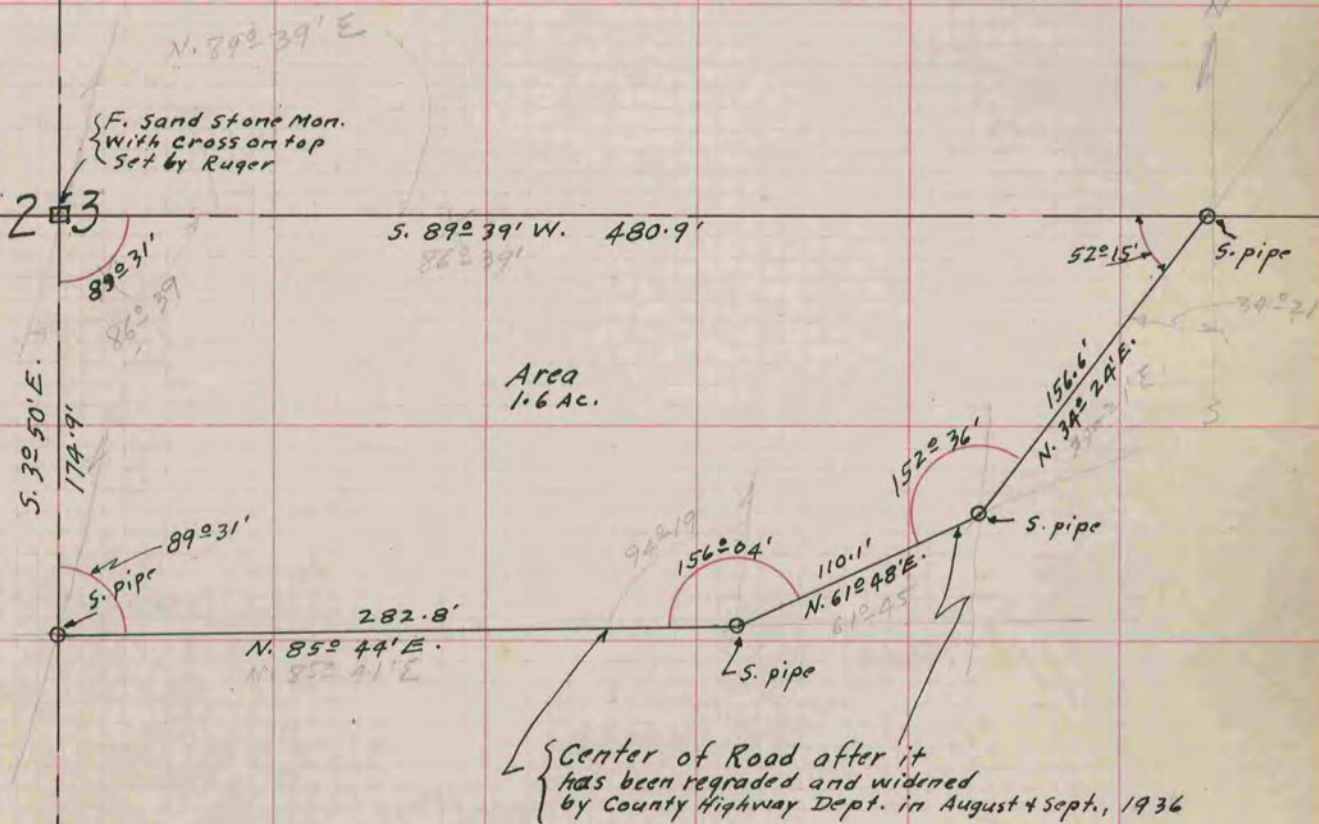 N
N. 89º 39' E
F. Sand Stone Mon.
with cross on top
Set by Ruger
2 3
S. 89º 39' W. 480.9'
86º 39'
89º 31'
86º 39'
52º 15'
S. pipe
34º 21
S. 3º 50' E.
174.9'
Area
1.6 Ac.
156.6'
N. 34º 24' E.
S
152º 36'
S. pipe
89º 31'
S. pipe
94º 19
156º 04'
110.1'
N. 61º 48' E.
61º 45
282.8'
N. 85º 44' E.
N. 85º 41' E
S. pipe
Center of Road after it
has been regraded and widened
by County Highway Dept. in August & Sept., 1936